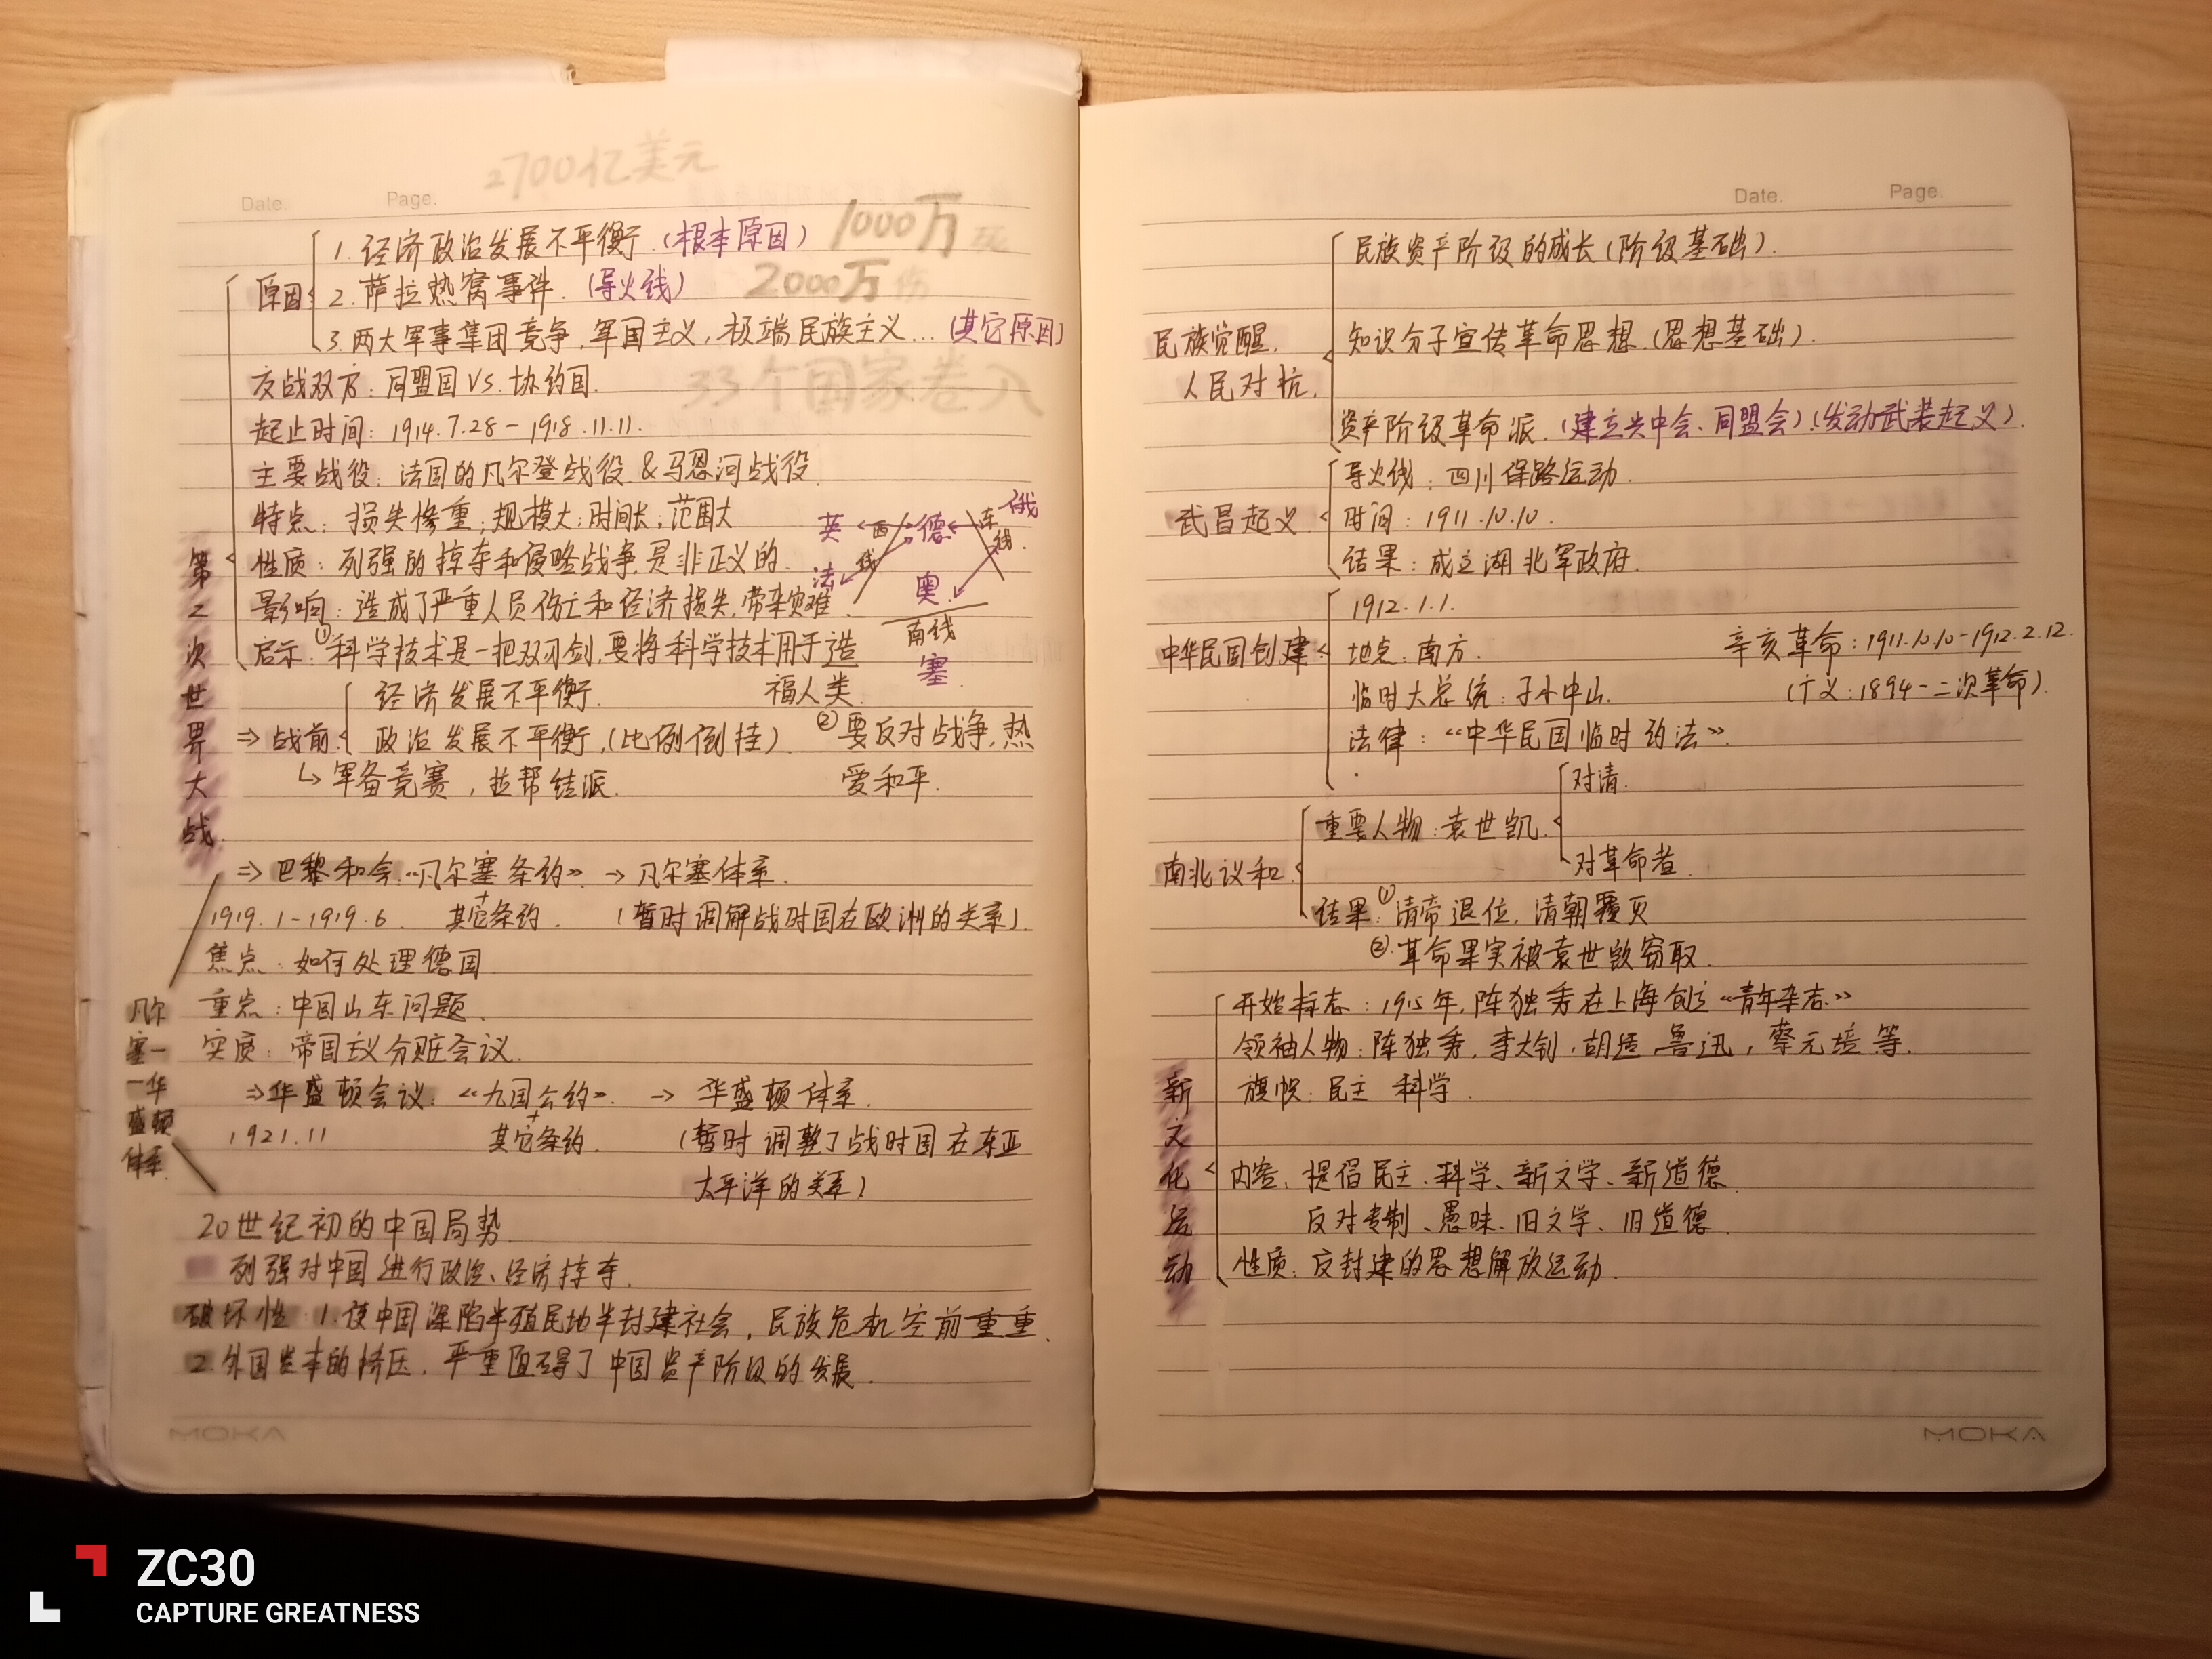 2700亿美元
Date. Page.
1000万死
2000万伤
33个国家卷入
第
次
世
界
大
战.
原因
1. 经济政治发展不平衡.(根本原因)
2. 萨拉热窝事件. (导火线)
3. 两大军事集团竞争,军国主义,极端民族主义...(其它原因)
交战双方:同盟国VS.协约国.
起止时间:1914.7.28-1918.11.11.
主要战役:法国的凡尔登战役&马恩河战役.
特点:损失惨重;规模大;时间长;范围大
性质:列强的掠夺和侵略战争,是非正义的.
影响:造成了严重人员伤亡和经济损失,带来灾难.
启示:①科学技术是一把双刃剑,要将科学技术用于造
福人类
②要反对战争,热
爱和平.
英 西线 德 东线. 俄
法
奥
南线
塞
⇒战前
经济发展不平衡.
政治发展不平衡.(比例倒挂)
↳军备竞赛,拉帮结派.
⇒巴黎和会.《凡尔塞条约》→凡尔塞体系.
1919.1-1919.6. +其它条约. (暂时调解战时国在欧洲的关系)
焦点:如何处理德国.
重点:中国山东问题.
实质:帝国主义分赃会议.
⇒华盛顿会议:《九国公约》.→华盛顿体系.
1921.11 +其它条约. (暂时调整了战时国在东亚
太平洋的关系)
凡尔
塞一
一华
盛顿
体系
20世纪初的中国局势
列强对中国进行政治、经济掠夺.
破坏性:1.使中国深陷半殖民地半封建社会,民族危机空前重重.
2.外国资本的挤压,严重阻碍了中国资产阶级的发展.
MOKA
Date. Page.
民族觉醒,
人民对抗.
民族资产阶级的成长(阶级基础).
知识分子宣传革命思想.(思想基础).
资产阶级革命派.(建立兴中会、同盟会)(发动武装起义).
武昌起义.
导火线:四川保路运动.
时间:1911.10.10.
结果:成立湖北军政府.
中华民国创建
1912.1.1.
地点:南方.
临时大总统:孙中山.
法律:《中华民国临时约法》.
辛亥革命:1911.10.10-1912.2.12.
(广义:1894-二次革命).
南北议和
重要人物:袁世凯.
对清.
对革命者.
结果:①清帝退位,清朝覆灭
②.革命果实被袁世凯窃取.
新
文
化
运
动
开始标志:1915年,陈独秀在上海创立《青年杂志》
领袖人物:陈独秀,李大钊,胡适,鲁迅,蔡元培等.
旗帜:民主 科学.
内容:提倡民主、科学、新文学、新道德.
反对专制、愚昧、旧文学、旧道德.
性质:反封建的思想解放运动.
MOKA
ZC30
CAPTURE GREATNESS